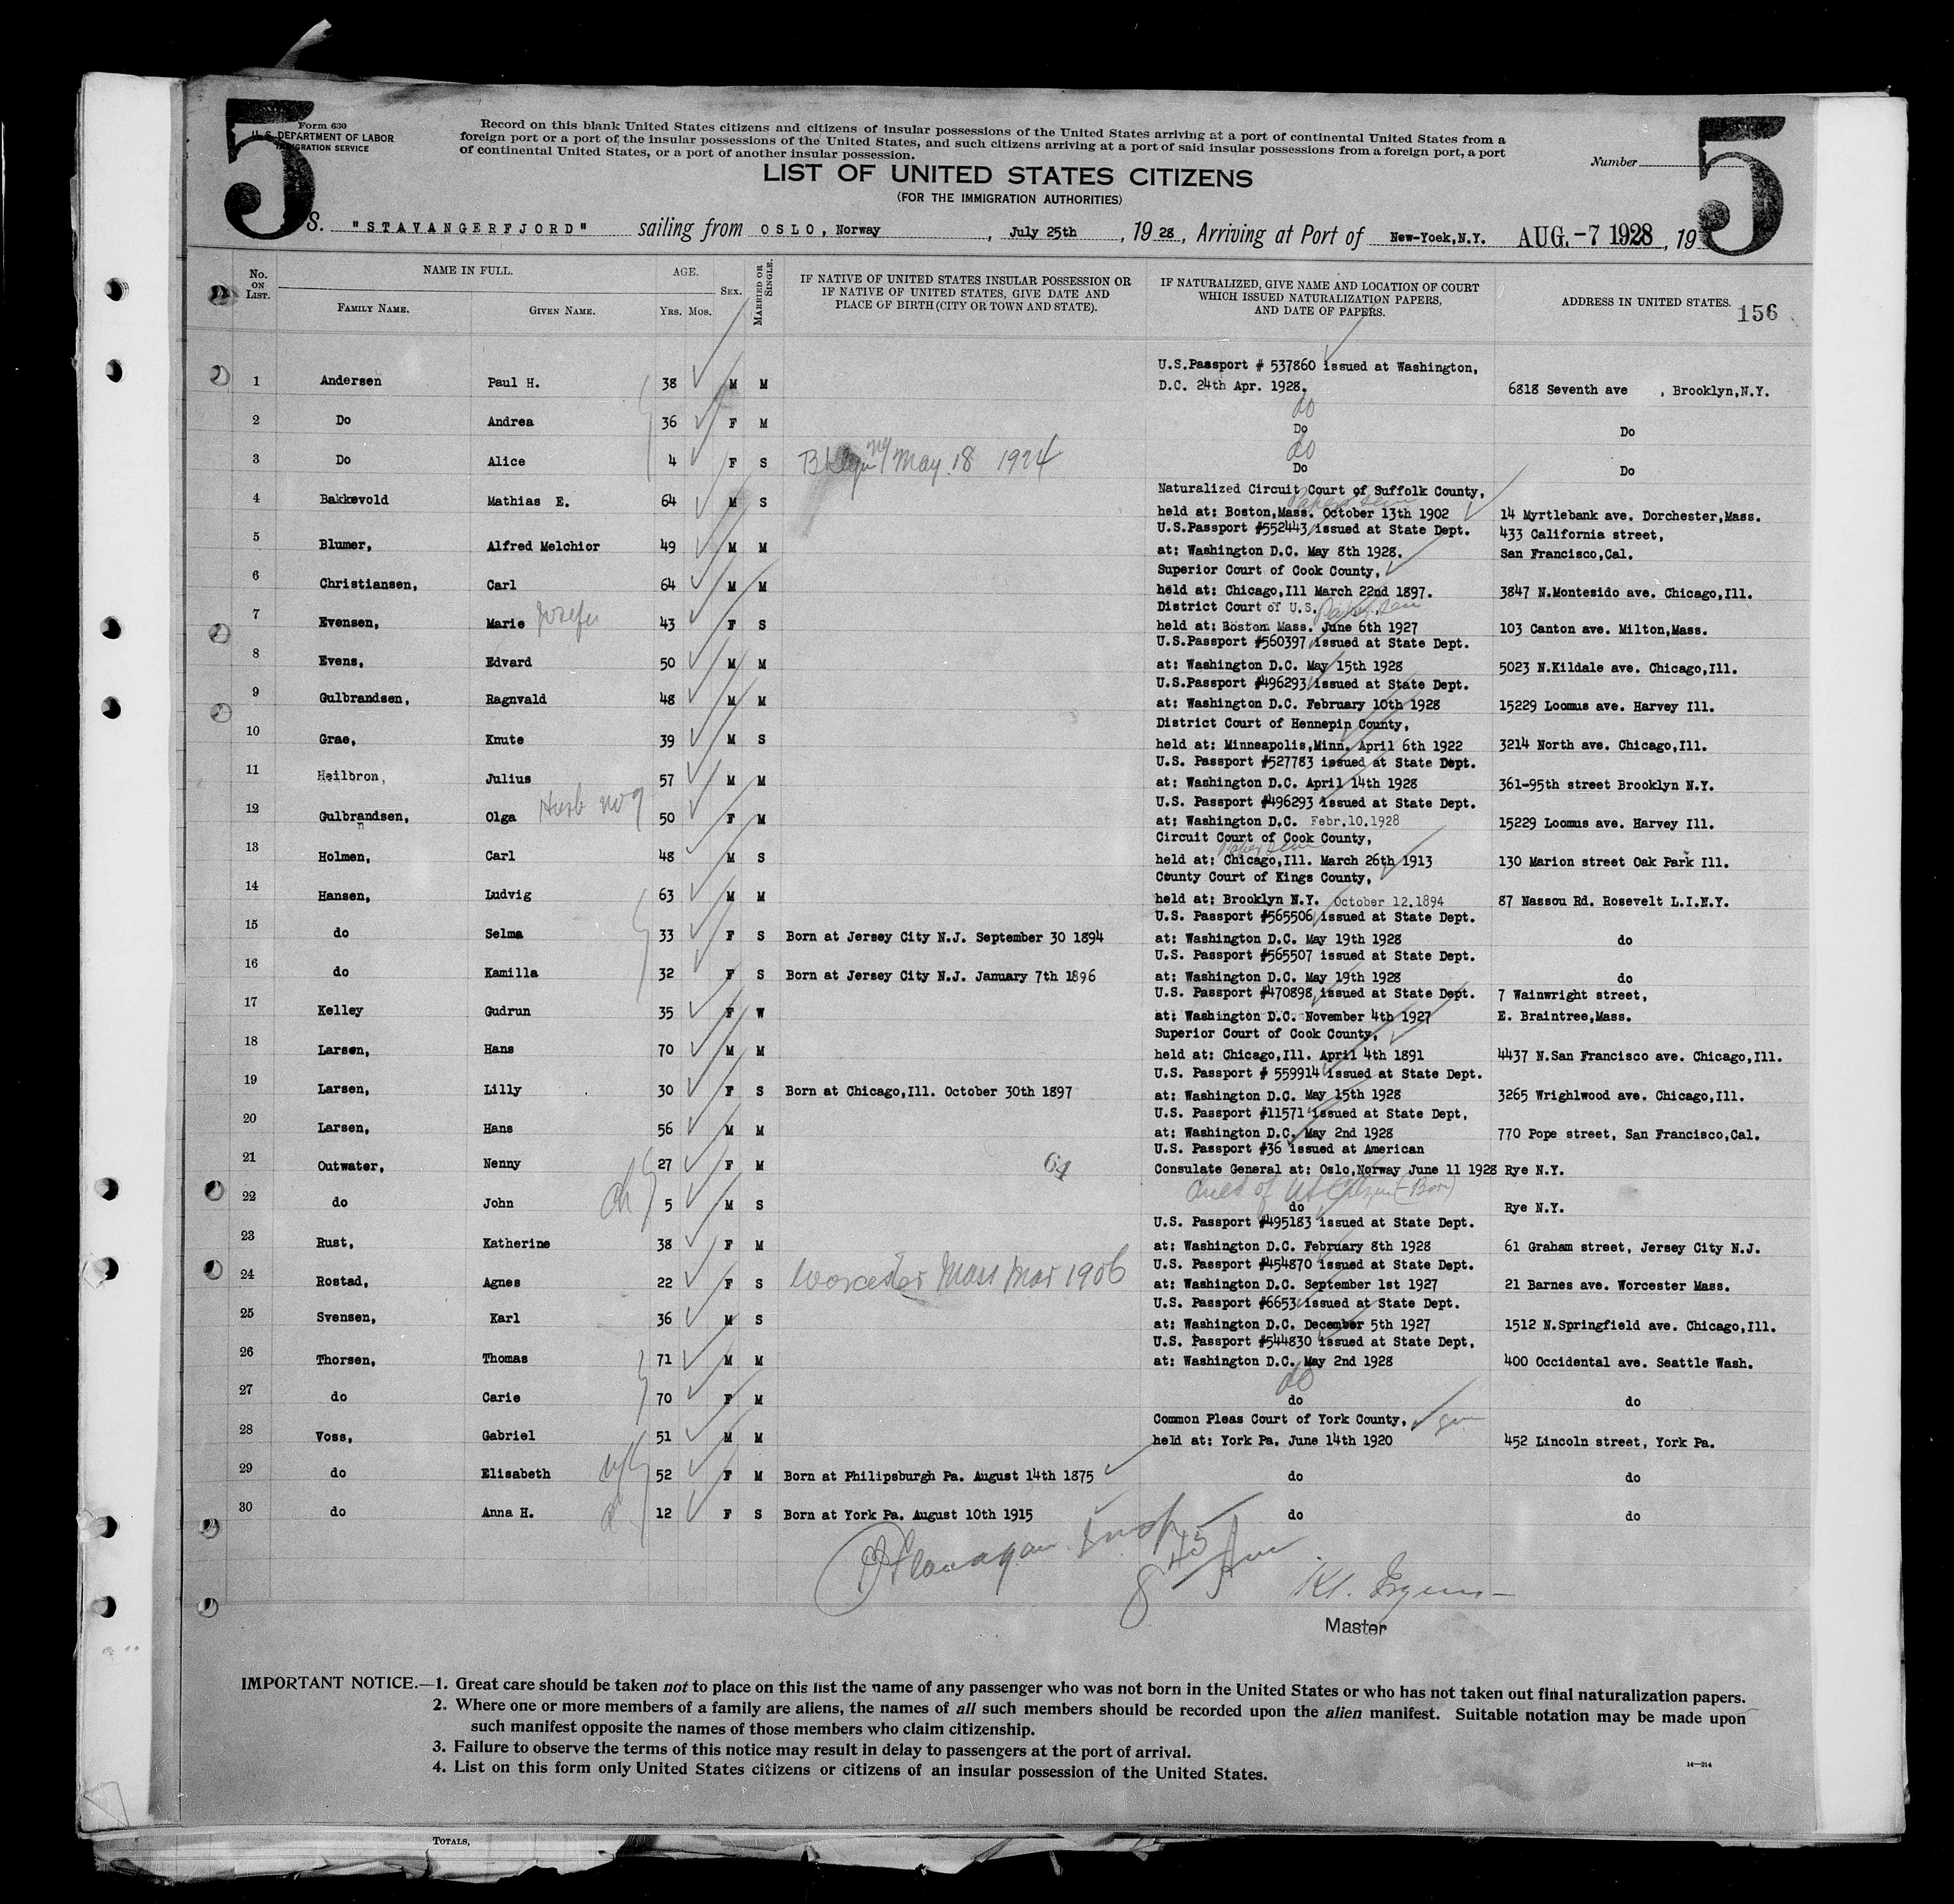 5
5
Form 630
U. S. DEPARTMENT OF LABOR
IMMIGRATION SERVICE
Record on this blank United States citizens and citizens of insular possessions of the United States arriving at a port of continental United States from a
foreign port or a port of the insular possessions of the United States, and such citizens arriving at a port of said insular possessions from a foreign port, a port
of continental United States, or a port of another insular possession.
Number
LIST OF UNITED STATES CITIZENS
(FOR THE IMMIGRATION AUTHORITIES)
S. "STAVANGERFJORD" sailing from OSLO, Norway, July 25th, 1928, Arriving at Port of New-Yoek,N.Y. AUG.-7 1928, 19
No. ON LIST. NAME IN FULL. FAMILY NAME. GIVEN NAME. AGE. YRS. MOS. SEX. MARRIED OR SINGLE. IF NATIVE OF UNITED STATES INSULAR POSSESSION OR IF NATIVE OF UNITED STATES, GIVE DATE AND PLACE OF BIRTH (CITY OR TOWN AND STATE). IF NATURALIZED, GIVE NAME AND LOCATION OF COURT WHICH ISSUED NATURALIZATION PAPERS, AND DATE OF PAPERS. ADDRESS IN UNITED STATES.
156
1 Andersen Paul H. 38 M M U.S.Passport # 537860 issued at Washington, D.C. 24th Apr. 1928. 6818 Seventh ave , Brooklyn,N.Y.
2 Do Andrea 36 F M do Do Do
3 Do Alice 4 F S Bklyn NY May 18 1924 do Do Do
4 Bakkevold Mathias E. 64 M S Naturalized Circuit Court of Suffolk County, held at: Boston,Mass. October 13th 1902 Papers seen 14 Myrtlebank ave. Dorchester,Mass.
5 Blumer, Alfred Melchior 49 M M U.S.Passport #552443 issued at State Dept. at: Washington D.C. May 8th 1928. 433 California street, San Francisco,Cal.
6 Christiansen, Carl 64 M M Superior Court of Cook County, held at: Chicago,Ill March 22nd 1897. 3847 N.Montesido ave. Chicago,Ill.
7 Evensen, Marie 43 F S District Court of U.S. Papers seen held at: Boston Mass. June 6th 1927 103 Canton ave. Milton,Mass.
8 Evens, Edvard 50 M M U.S.Passport #560397 issued at State Dept. at: Washington D.C. May 15th 1928 5023 N.Kildale ave. Chicago,Ill.
9 Gulbrandsen, Ragnvald 48 M M U.S.Passport #496293 issued at State Dept. at: Washington D.C. February 10th 1928 15229 Loomus ave. Harvey Ill.
10 Grae, Knute 39 M S District Court of Hennepin County, held at: Minneapolis,Minn. April 6th 1922 3214 North ave. Chicago,Ill.
11 Heilbron, Julius 57 M M U.S. Passport #527783 issued at State Dept. at: Washington D.C. April 14th 1928 361-95th street Brooklyn N.Y.
12 Gulbrandsen, Olga Husb no 9 50 F M U.S. Passport #496293 issued at State Dept. at: Washington D.C. Febr.10.1928 15229 Loomus ave. Harvey Ill.
13 Holmen, Carl 48 M S Circuit Court of Cook County, Papers seen held at: Chicago,Ill. March 26th 1913 130 Marion street Oak Park Ill.
14 Hansen, Ludvig 63 M M County Court of Kings County, held at: Brooklyn N.Y. October 12.1894 87 Nassou Rd. Rosevelt L.I.N.Y.
15 do Selma 33 F S Born at Jersey City N.J. September 30 1894 U.S. Passport #565506 issued at State Dept. at: Washington D.C. May 19th 1928 do
16 do Kamilla 32 F S Born at Jersey City N.J. January 7th 1896 U.S. Passport #565507 issued at State Dept. at: Washington D.C. May 19th 1928 do
17 Kelley Gudrun 35 F W U.S. Passport #470898 issued at State Dept. at: Washington D.C. November 4th 1927 7 Wainwright street, E. Braintree,Mass.
18 Larsen, Hans 70 M M Superior Court of Cook County, held at: Chicago,Ill. April 4th 1891 4437 N.San Francisco ave. Chicago,Ill.
19 Larsen, Lilly 30 F S Born at Chicago,Ill. October 30th 1897 U.S. Passport # 559914 issued at State Dept. at: Washington D.C. May 15th 1928 3265 Wrighlwood ave. Chicago,Ill.
20 Larsen, Hans 56 M M U.S. Passport #11571 issued at State Dept, at: Washington D.C. May 2nd 1928 770 Pope street, San Francisco,Cal.
21 Outwater, Nenny 27 F M 64 U.S. Passport #36 issued at American Consulate General at: Oslo,Norway June 11 1928 Rye N.Y.
22 do John ch 5 M S do Rye N.Y.
23 Rust, Katherine 38 F M U.S. Passport #495183 issued at State Dept. at: Washington D.C. February 8th 1928 61 Graham street, Jersey City N.J.
24 Rostad, Agnes 22 F S Worcester Mass Mar 1906 U.S. Passport #454870 issued at State Dept. at: Washington D.C. September 1st 1927 21 Barnes ave. Worcester Mass.
25 Svensen, Karl 36 M S U.S. Passport #6653 issued at State Dept. at: Washington D.C. December 5th 1927 1512 N.Springfield ave. Chicago,Ill.
26 Thorsen, Thomas 71 M M U.S. Passport #544830 issued at State Dept, at: Washington D.C. May 2nd 1928 400 Occidental ave. Seattle Wash.
27 do Carie 70 F M do do do
28 Voss, Gabriel 51 M M Common Pleas Court of York County, held at: York Pa. June 14th 1920 452 Lincoln street, York Pa.
29 do Elisabeth wf 52 F M Born at Philipsburgh Pa. August 14th 1875 do do
30 do Anna H. d 12 F S Born at York Pa. August 10th 1915 do do
Flanagan Insp
8 45 Am
Master
IMPORTANT NOTICE.—1. Great care should be taken not to place on this list the name of any passenger who was not born in the United States or who has not taken out final naturalization papers.
2. Where one or more members of a family are aliens, the names of all such members should be recorded upon the alien manifest. Suitable notation may be made upon
such manifest opposite the names of those members who claim citizenship.
3. Failure to observe the terms of this notice may result in delay to passengers at the port of arrival.
4. List on this form only United States citizens or citizens of an insular possession of the United States.
14—214
TOTALS,